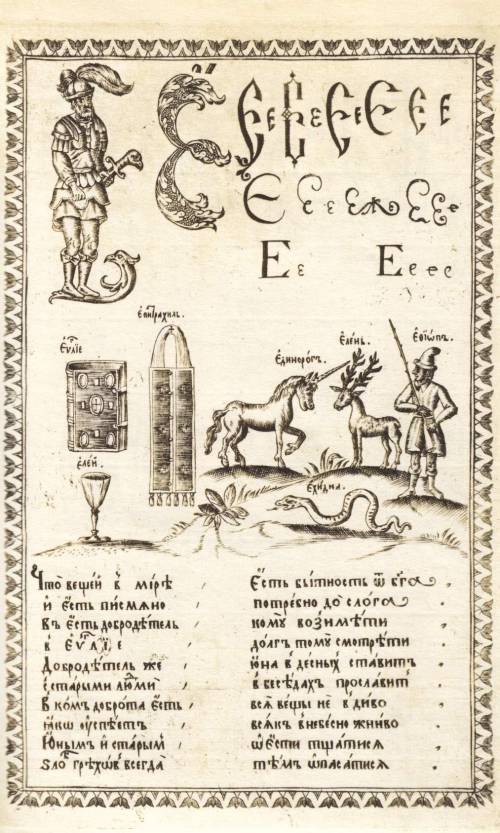 Є Є е Є є Є е Є Є е е
Є е е ея Єе е
Е е Е е е е
епитрахиль.
еѵⷢ҇лїе
единорогъ.
елень.
еѳїопъ.
елей.
ехидна.
Что вещей в̾ мірѣ
и́ е́сть пи́смѧно
въ е́сть добродѣтель
в̾ еѵⷢ҇лїе
Добродѣтель же
с̾ старыми людми
В комъ доброта е́сть
ꙗ́кѡ оуспѣетъ
Ю́нымъ и́ старым̾
ѕло грѣхѡв̾ всегда
Е́сть бытность ѿ бг҃а
потребно до слога
комꙋ возимѣти
долгъ томꙋ смотрѣти
ю́на в̾ десных̾ ставитъ
в̾ бесѣдахъ прославит̾
всѧ вещы не в̾ диво
всѧкъ в̾ небесно жниво
ѿ ести тщатисѧ
тѣмъ ѡпасатисѧ